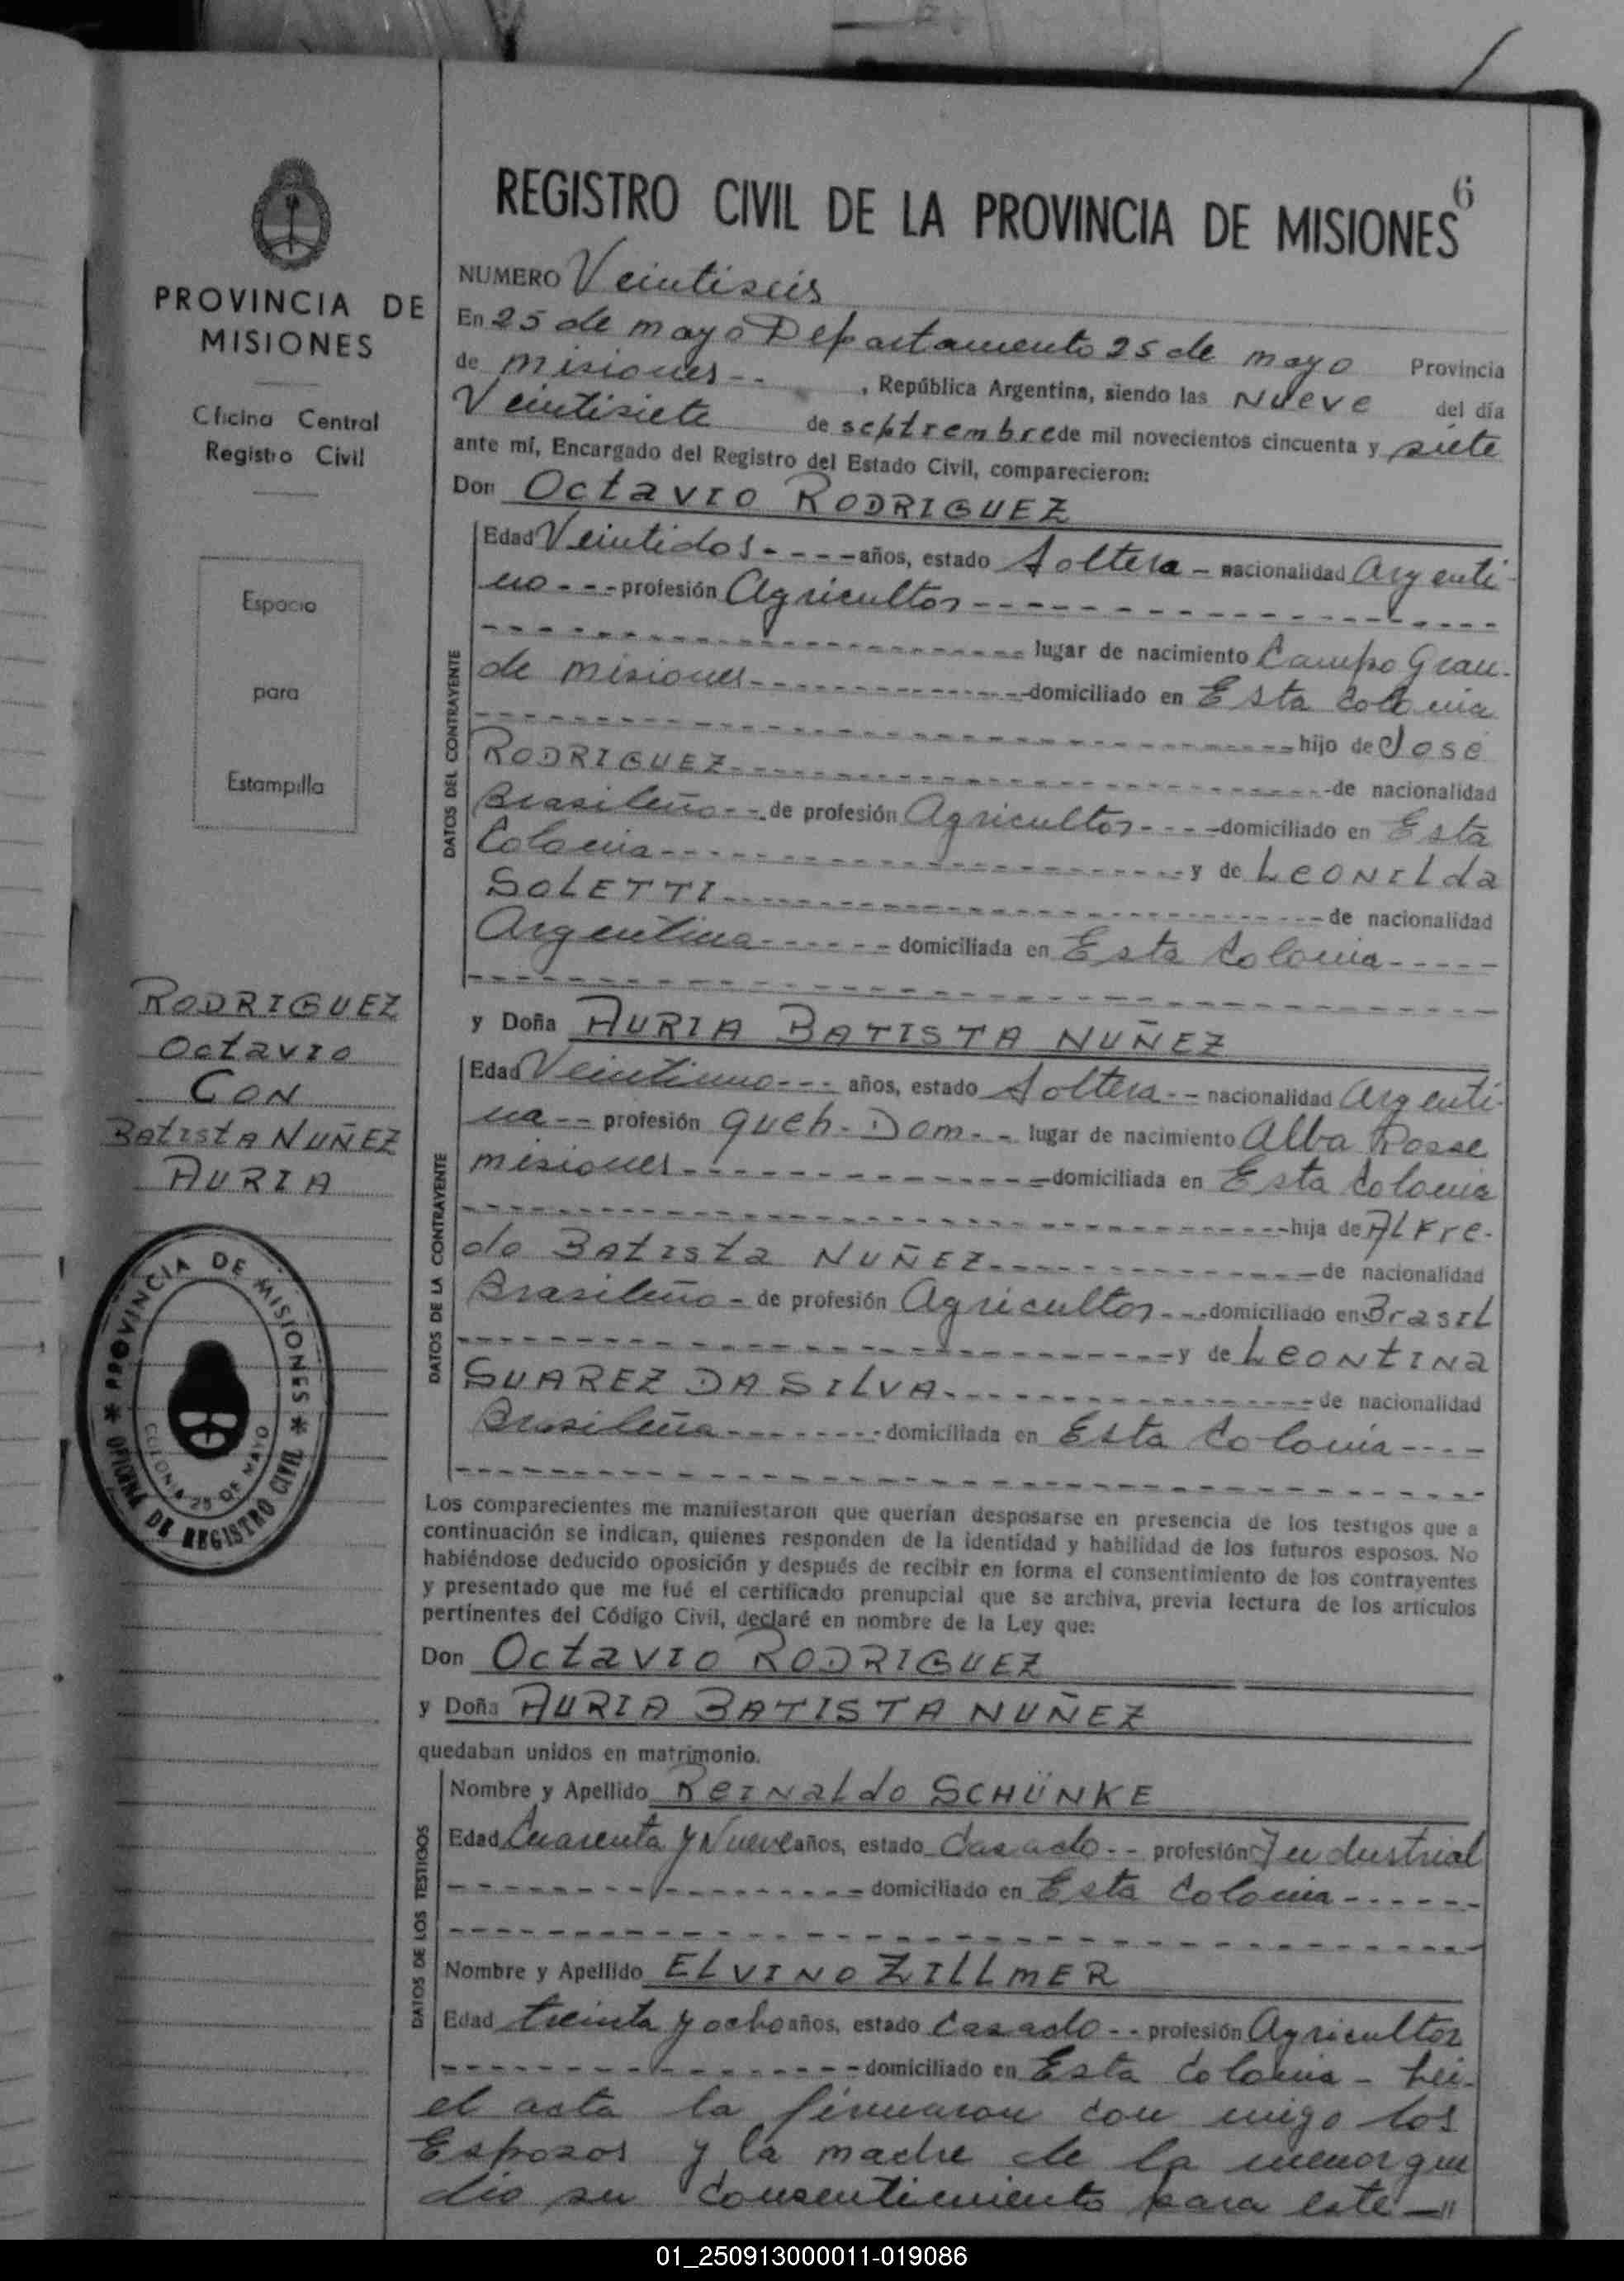 6
REGISTRO CIVIL DE LA PROVINCIA DE MISIONES
PROVINCIA DE
MISIONES
Oficina Central
Registro Civil
Espacio
para
Estampilla
RODRIGUEZ
Octavio
CON
Batista NUÑEZ
AURIA
PROVINCIA DE MISIONES
OFICINA DE REGISTRO CIVIL
COLONIA 25 DE MAYO
NUMERO Veintiseis
En 25 de mayo Departamento 25 de mayo Provincia
de misiones -- , República Argentina, siendo las Nueve del día
Veintisiete de septrembre de mil novecientos cincuenta y siete
ante mí, Encargado del Registro del Estado Civil, comparecieron:
Don Octavio RODRIGUEZ
DATOS DEL CONTRAYENTE
Edad Veintidos ---- años, estado Soltero - nacionalidad Argenti-
no --- profesión Agricultor ----
---- lugar de nacimiento Campo Gran-
de misiones ---- domiciliado en Esta Colonia
---- hijo de José
RODRIGUEZ ---- de nacionalidad
Brasileño -- de profesión Agricultor ---- domiciliado en Esta
Colonia ---- y de Leonilda
SOLETTI ---- de nacionalidad
Argentina ---- domiciliada en Esta Colonia ----
y Doña AURIA BATISTA NUÑEZ
DATOS DE LA CONTRAYENTE
Edad Veintiuno --- años, estado Soltera -- nacionalidad Argenti-
na -- profesión queh. Dom. - lugar de nacimiento Alba Posse
misiones ---- domiciliada en Esta Colonia
---- hija de Alfre-
do Batista NUÑEZ ---- de nacionalidad
Brasileño - de profesión Agricultor --- domiciliado en Brasil
---- y de Leontina
SUAREZ DA SILVA ---- de nacionalidad
Brasileña ---- domiciliada en Esta Colonia ----
Los comparecientes me manifestaron que querían desposarse en presencia de los testigos que a
continuación se indican, quienes responden de la identidad y habilidad de los futuros esposos. No
habiéndose deducido oposición y después de recibir en forma el consentimiento de los contrayentes
y presentado que me fué el certificado prenupcial que se archiva, previa lectura de los artículos
pertinentes del Código Civil, declaré en nombre de la Ley que:
Don Octavio RODRIGUEZ
y Doña AURIA BATISTA NUÑEZ
quedaban unidos en matrimonio.
DATOS DE LOS TESTIGOS
Nombre y Apellido Reinaldo SCHÜNKE
Edad Cuarenta y Nueve años, estado Casado -- profesión Industrial
---- domiciliado en Esta Colonia ----
Nombre y Apellido ELVINO ZILLMER
Edad treinta y ocho años, estado Casado -- profesión Agricultor
---- domiciliado en Esta Colonia - Lei-
el acta la firmaron con migo los
Esposos y la madre de la menor que
dio su Consentimiento para este -"
01_250913000011-019086